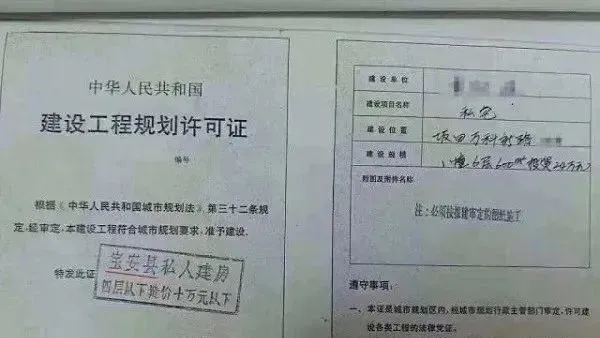 中华人民共和国
建设工程规划许可证
编号
根据《中华人民共和国城市规划法》第三十二条规
定,经审定,本建设工程符合城市规划要求,准予建设.
特发此证
宝安县私人建房
四层以下造价十万元以下
建设单位
建设项目名称 私宅
建设位置 坂田万科新路
建设规模 1幢6层600㎡投资24万元
附图及附件名称
注:必须按报建审定的图纸施工
遵守事项:
一、本证是城市规划区内,经城市规划行政主管部门审定,许可建
设各类工程的法律凭证.